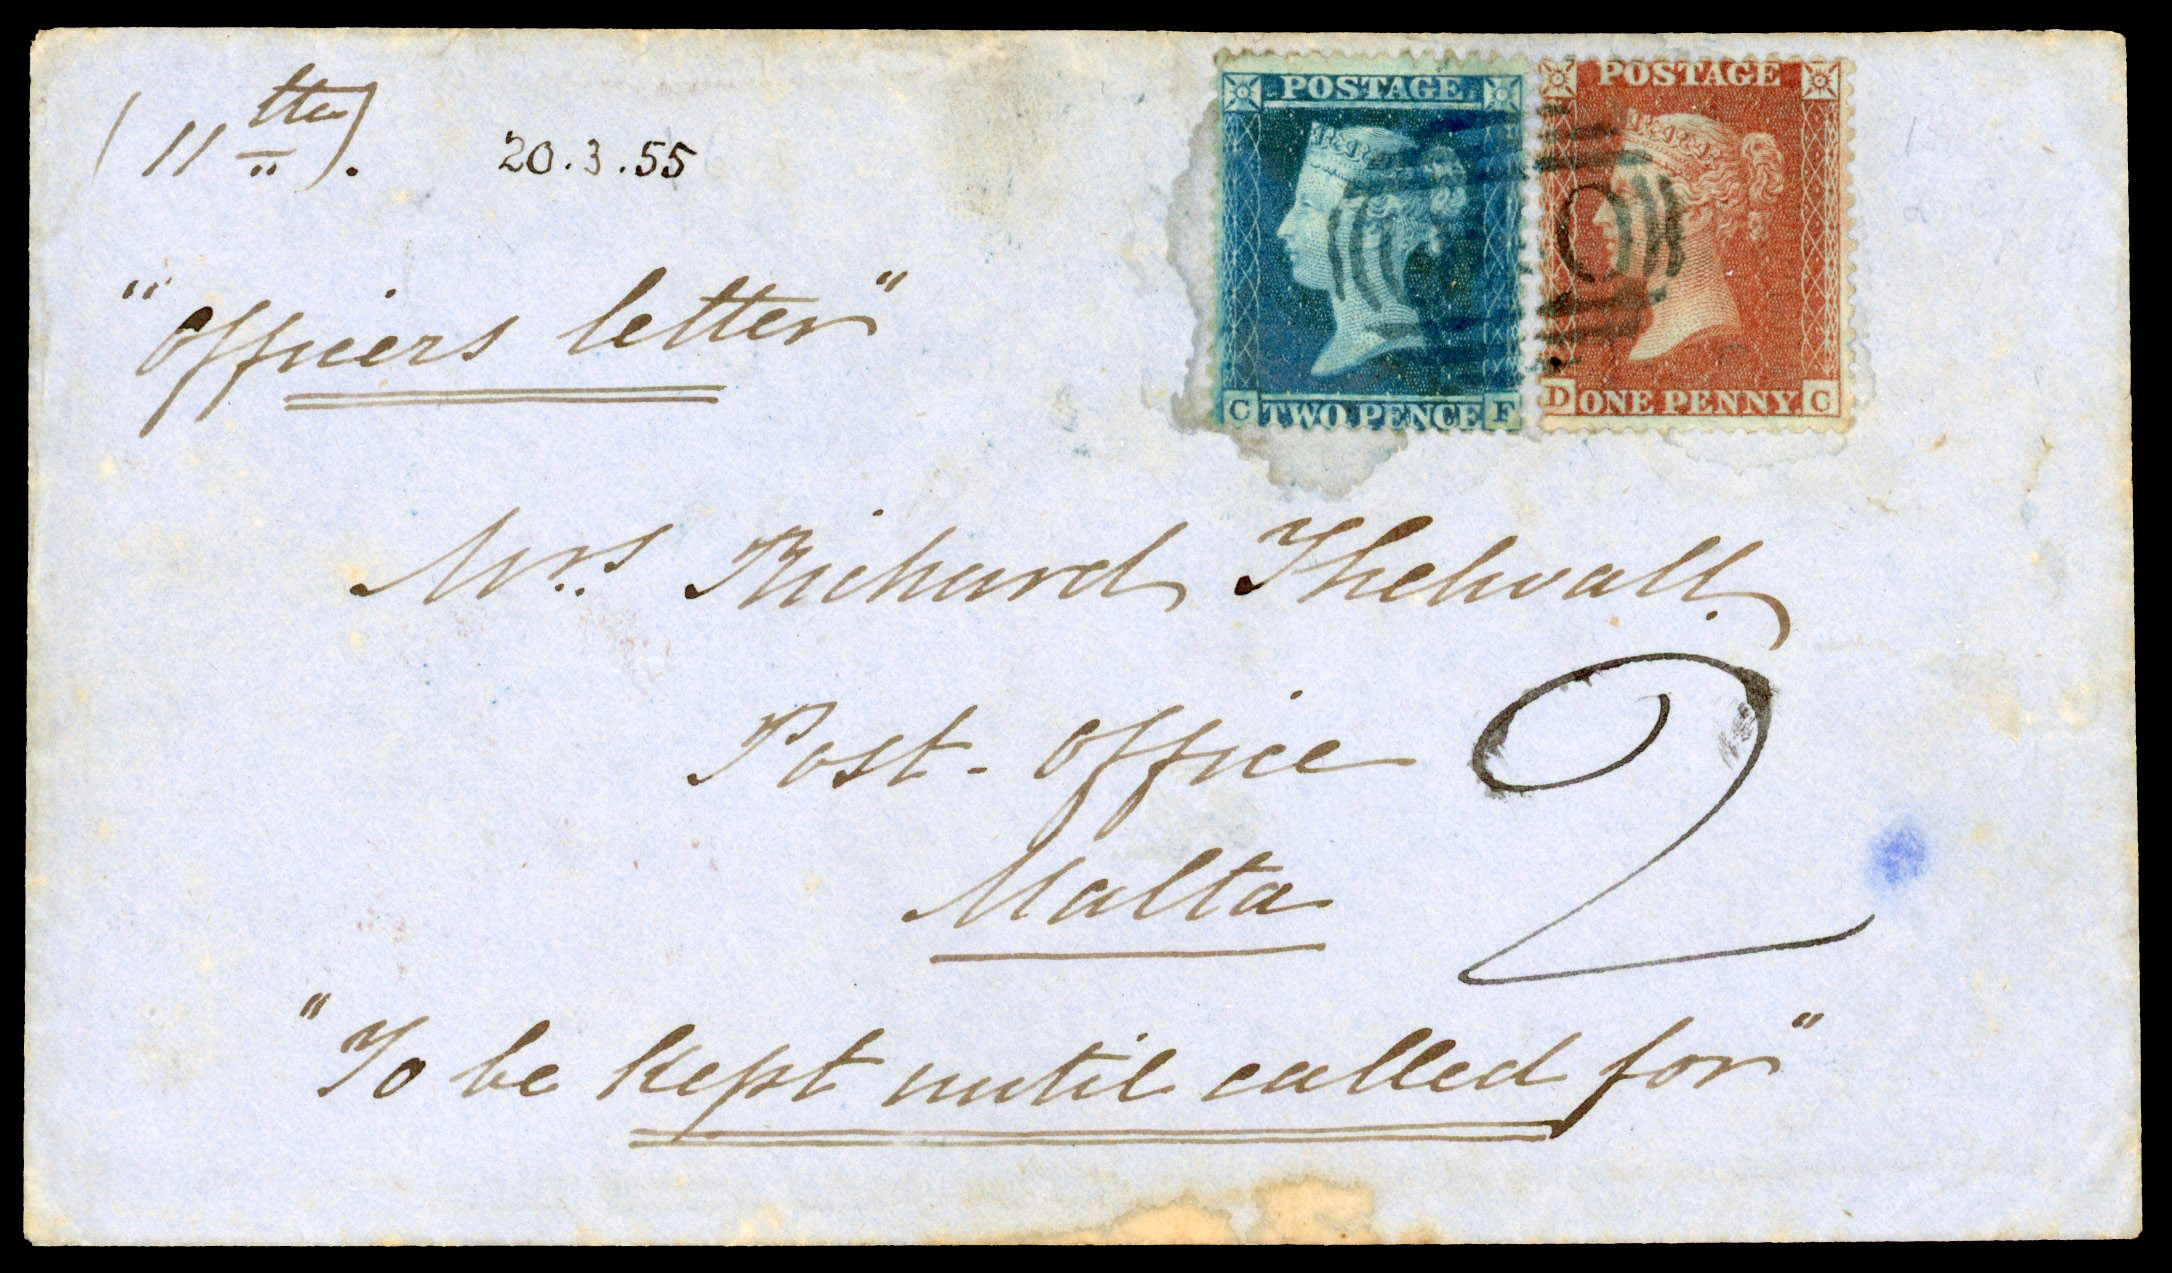 (11the).
20.3.55
"Officers letter"
POSTAGE
C TWO PENCE F
POSTAGE
D ONE PENNY C
O
Mrs Richard Thelwall
Post-Office
2
Malta
"To be kept until called for"